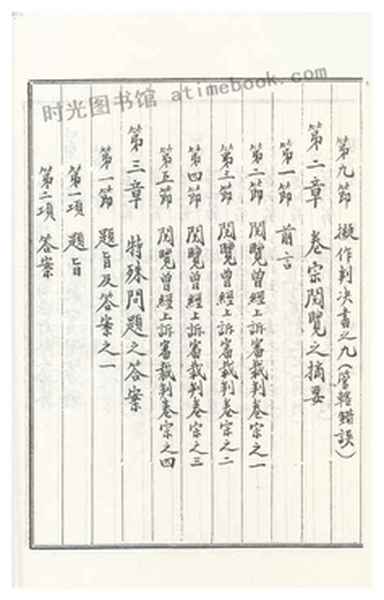 时光图书馆 atimebook.com
第九節 擬作判决書之九(管轄錯誤)
第二章 卷宗閱覽之摘要
第一節 前言
第二節 閱覽曾經上訴審裁判卷宗之一
第三節 閱覽曾經上訴審裁判卷宗之二
第四節 閱覽曾經上訴審裁判卷宗之三
第五節 閱覽曾經上訴審裁判卷宗之四
第三章 特殊問題之答案
第一節 題旨及答案之一
第一項 題旨
第二項 答案